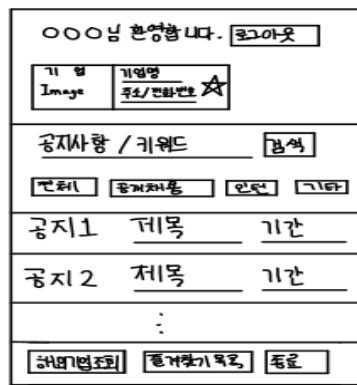 ○○○님 환영합니다. 로그아웃
기업 Image 기업명
주소/전화번호 ☆
공지사항 / 키워드 검색
전체 공개채용 인턴 기타
공지1 제목 기간
공지2 제목 기간
:
해외기업조회 즐겨찾기목록 종료